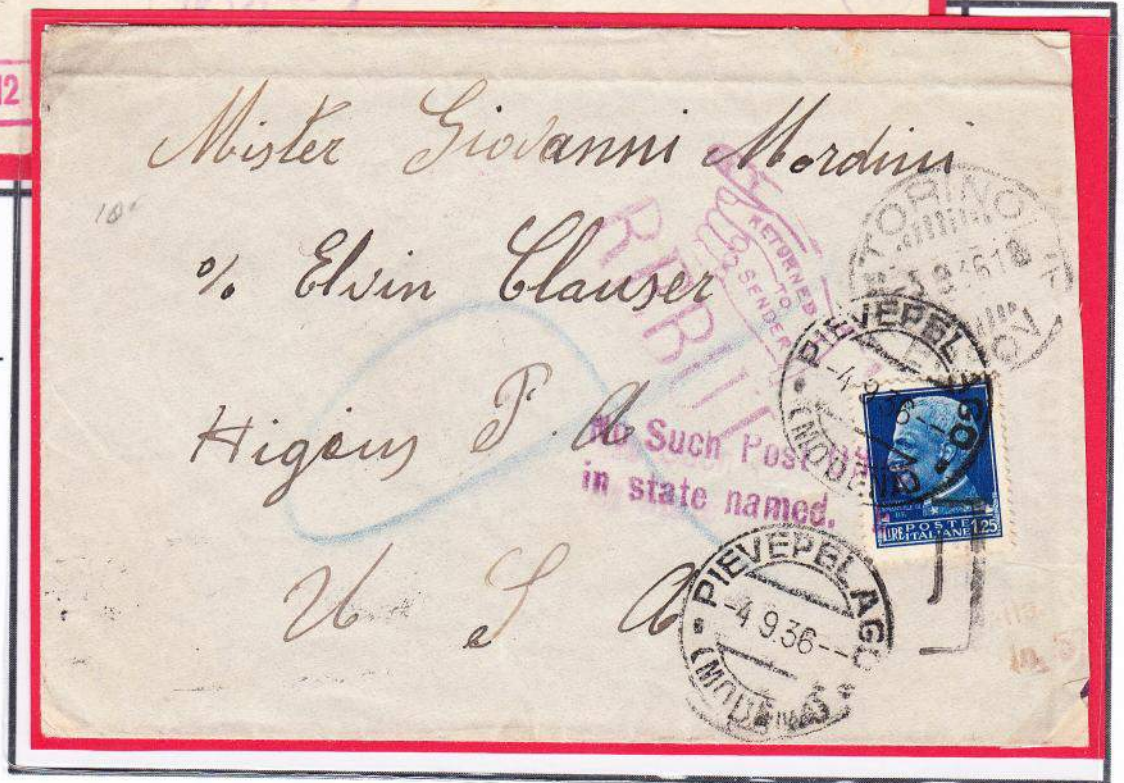 12
Mister Giovanni Mordini
% Elvin Clauser
Higens P. A
U S A
RETURNED
TO
SENDER
No Such Post
in state named.
TORINO
PIEVEPELAGO
-4.9.36
(MODENA)
LIRE POSTE ITALIANE 1.25
PIEVEPELAGO
-4.9.36--
(MODENA)